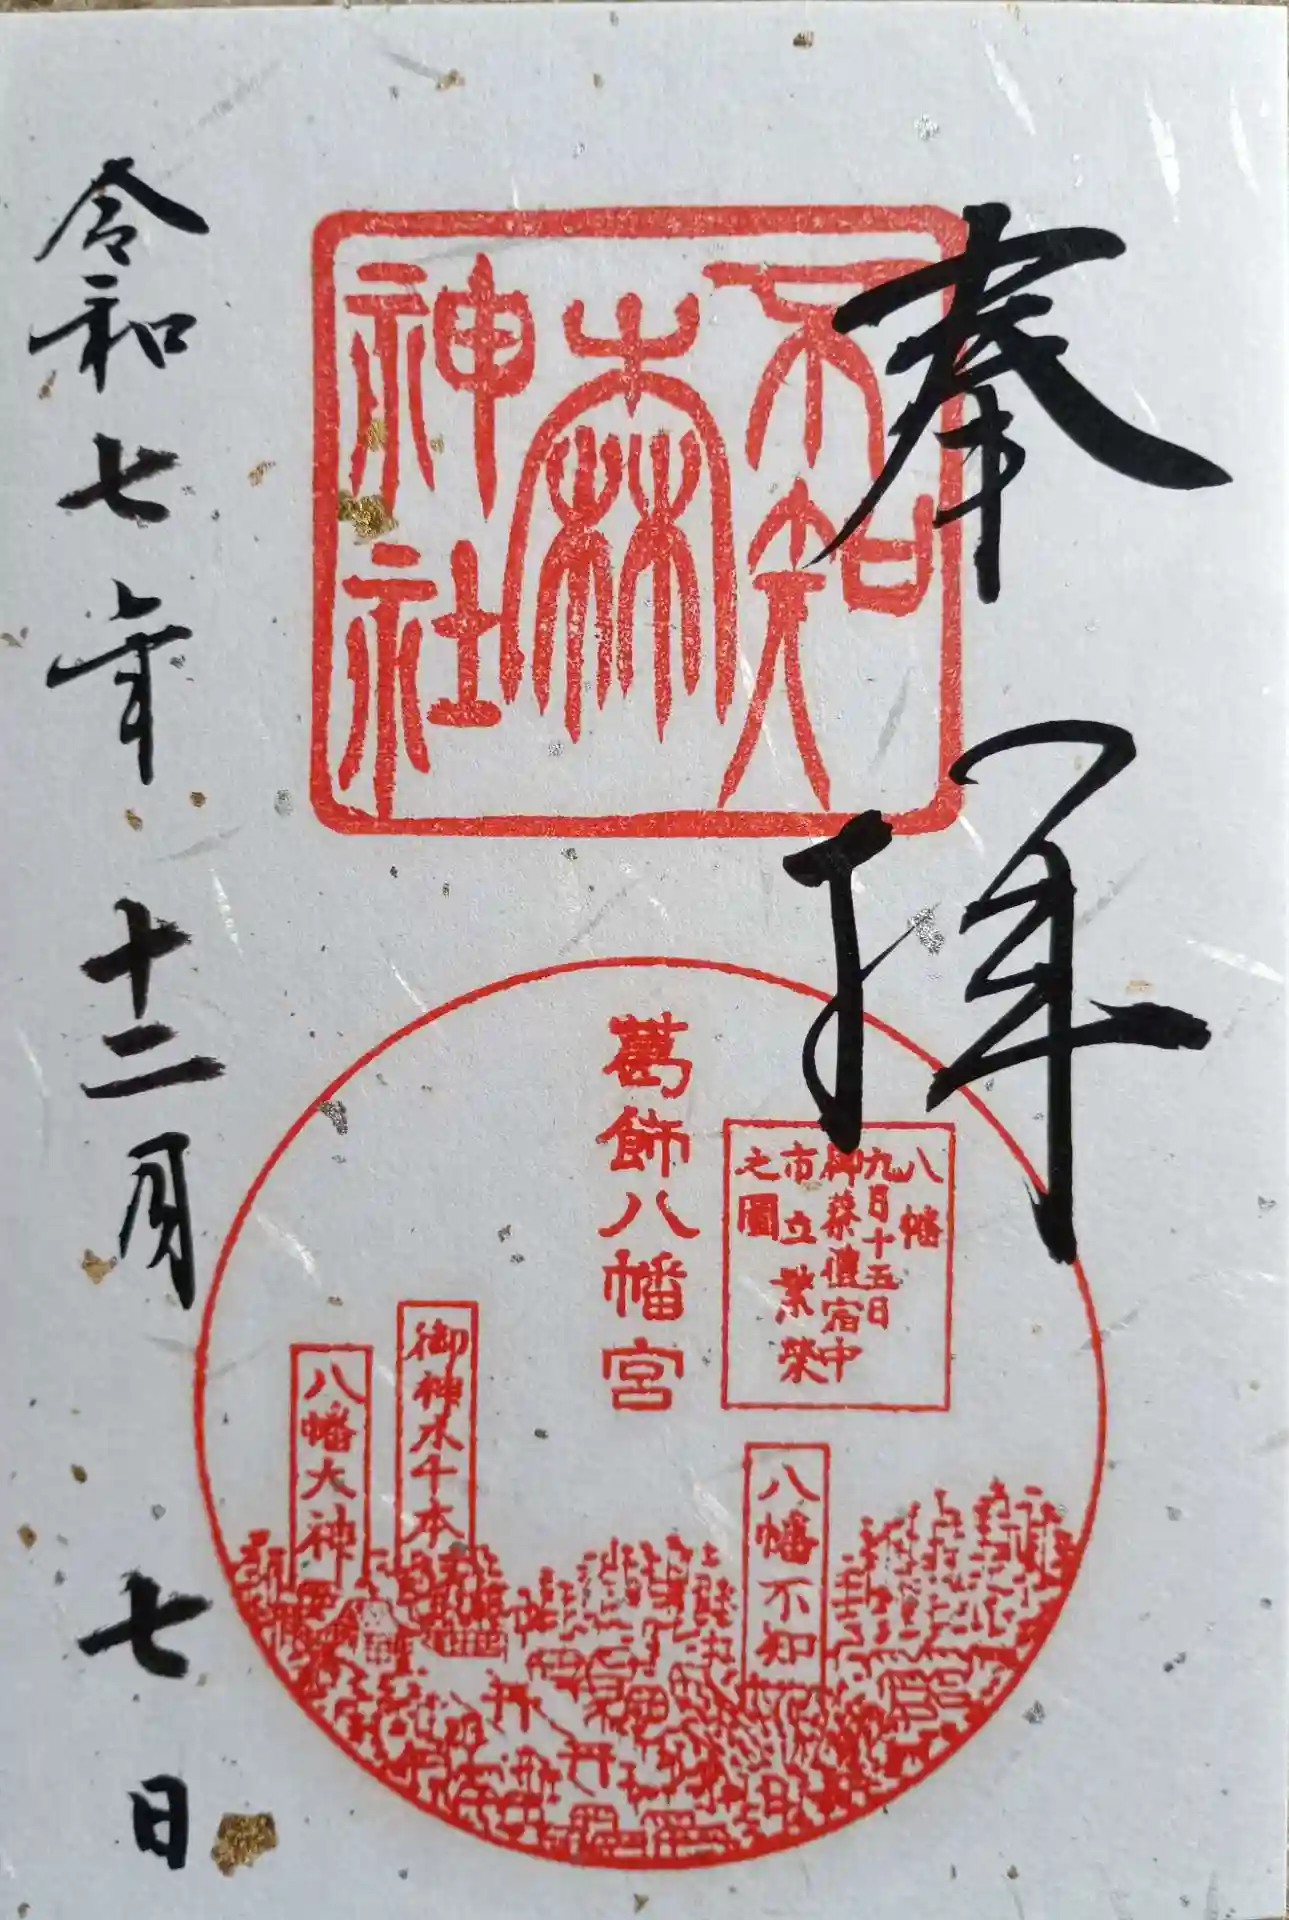 奉拝
不知森神社
葛飾八幡宮
八幡
九月十五日
御祭禮宿中
市立繁榮
之圖
八幡不知
御神木千本
八幡大神
令和七年十二月七日